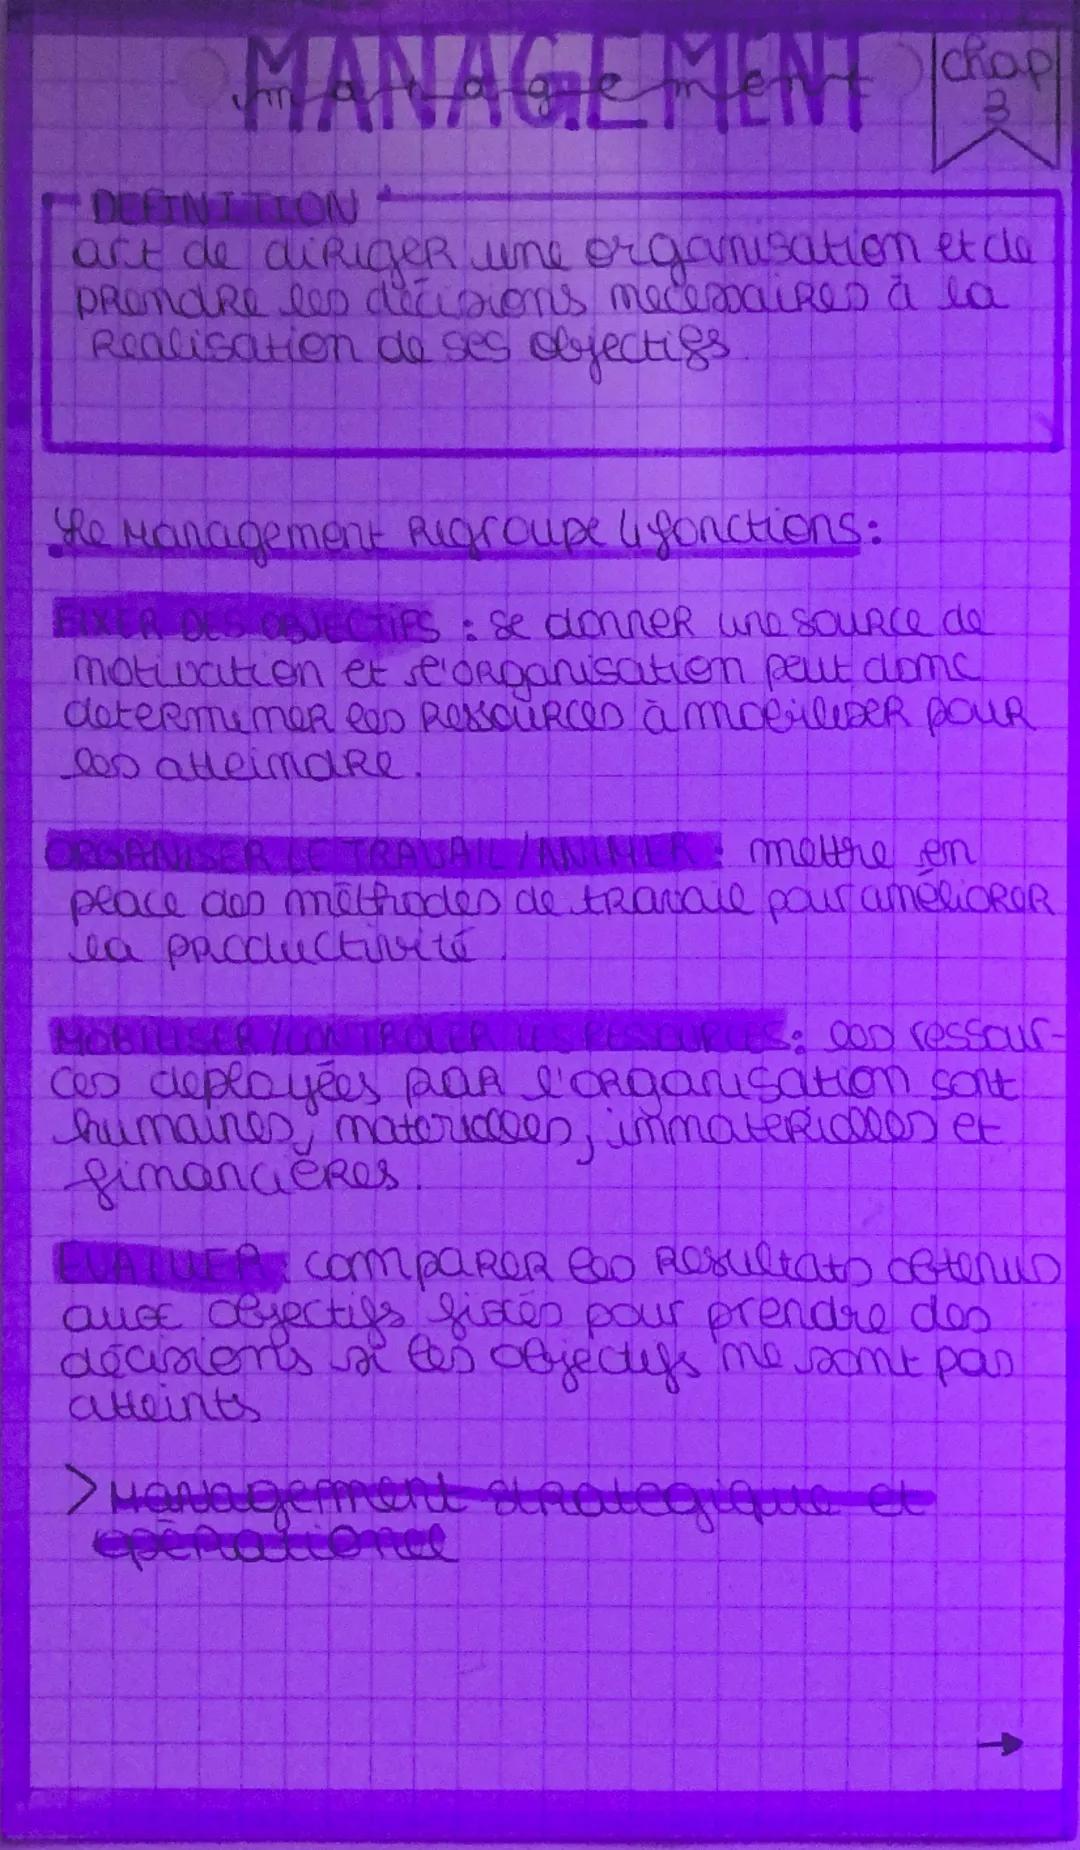 MANAGEMENT
management
chap
3
DEFINITION
art de diriger une organisation et de
prendre les décisions necessaires à la
realisation de ses objectifs.
Le Management regroupe 4 fonctions :
FIXER DES OBJECTIFS : se donner une source de
motivation et l'organisation peut donc
determiner les ressources à mobiliser pour
les atteindre.
ORGANISER LE TRAVAIL / ANIMER : mettre en
place des méthodes de travail pour améliorer
la productivité.
MOBILISER / CONTROLER LES RESSOURCES : les ressour-
ces deployées par l'organisation sont
humaines, materielles, immaterielles et
financières.
EVALUER : comparer les resultats obtenus
aux objectifs fixés pour prendre des
décisions si les objectifs ne sont pas
atteints
> Management strategique et
opérationel
→